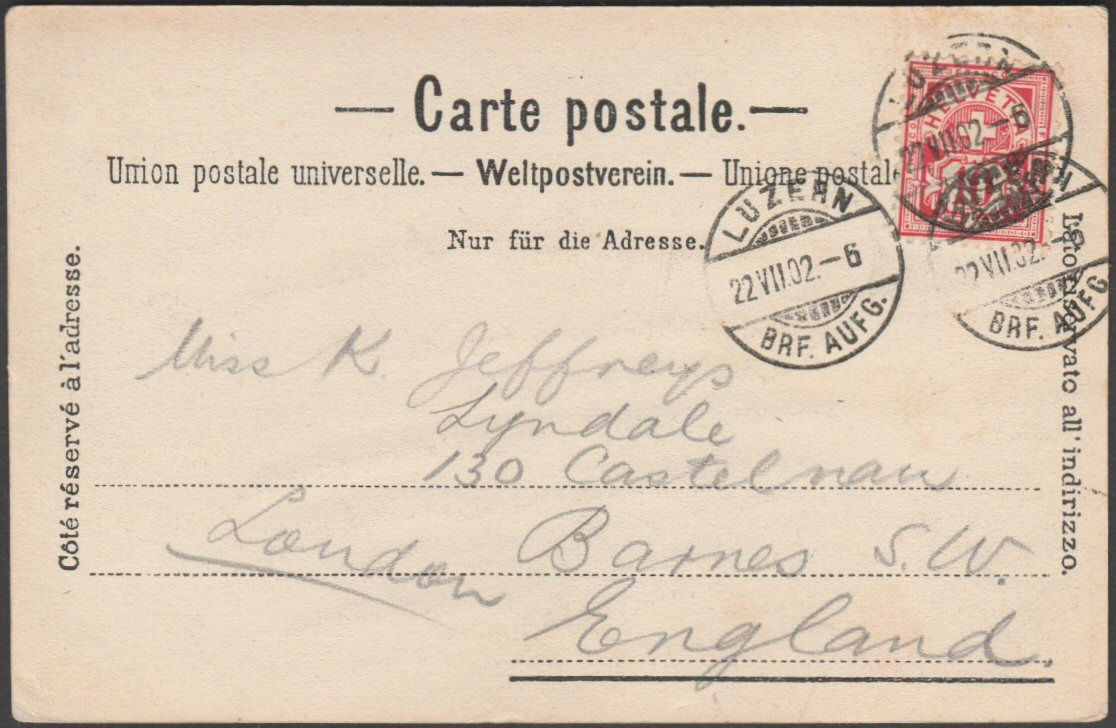 — Carte postale. —
Union postale universelle. — Weltpostverein. — Unione postale
Nur für die Adresse.
Côté réservé à l'adresse.
Lato riservato all' indirizzo.
HELVETIA
10
LUZERN
22 VII.02.–6
LUZERN
22 VII.02.–6
BRF. AUFG.
22 VII.02.–6
BRF. AUFG.
Miss K. Jeffreys
Lyndale
130 Castelnau
Barnes S.W.
London
England